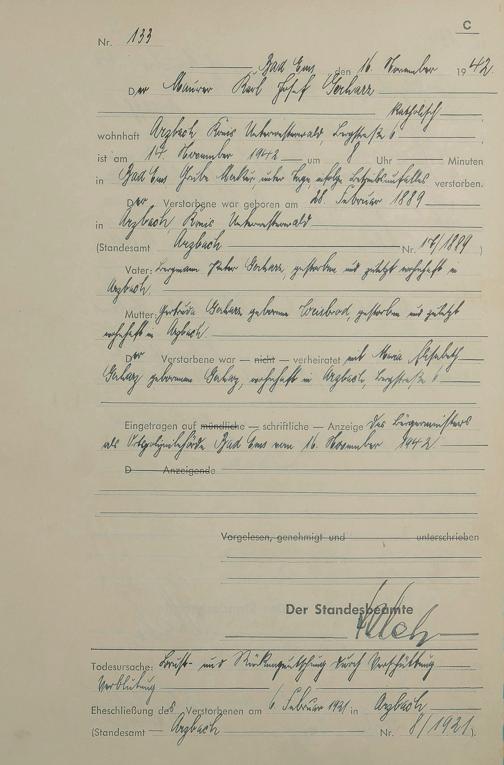 C
Nr. 133
Bad Ems, den 16. November 1942
Der Maurer Karl Josef Gerharz
katholisch
wohnhaft Arzbach Kreis Unterwesterwald, Bergstraße 6
ist am 14. November 1942 um 8 Uhr Minuten
in Bad Ems Grube Merkur unter Tage infolge Betriebsunfalles verstorben.
Der Verstorbene war geboren am 28. Februar 1889
in Arzbach, Kreis Unterwesterwald
(Standesamt Arzbach Nr. /1889)
Vater: Bergmann Peter Gerharz, gestorben und zuletzt wohnhaft in
Arzbach.
Mutter: Gertruda Gerharz geborene gestorben und zuletzt
wohnhaft in Arzbach
Der Verstorbene war — nicht — verheiratet mit Maria Elisabeth
Gerharz geborenen Gerharz, wohnhaft in Arzbach Bergstraße 6
Eingetragen auf mündliche — schriftliche — Anzeige des Bürgermeisters
als Ortspolizeibehörde Bad Ems vom 16. November 1942
D Anzeigende
Vorgelesen, genehmigt und unterschrieben
Der Standesbeamte
Todesursache: Brust- und Rückenquetschung durch Verschüttung
Verblutung
Eheschließung des Verstorbenen am 6. Februar 1921 in Arzbach
(Standesamt Arzbach Nr. 8/1921).